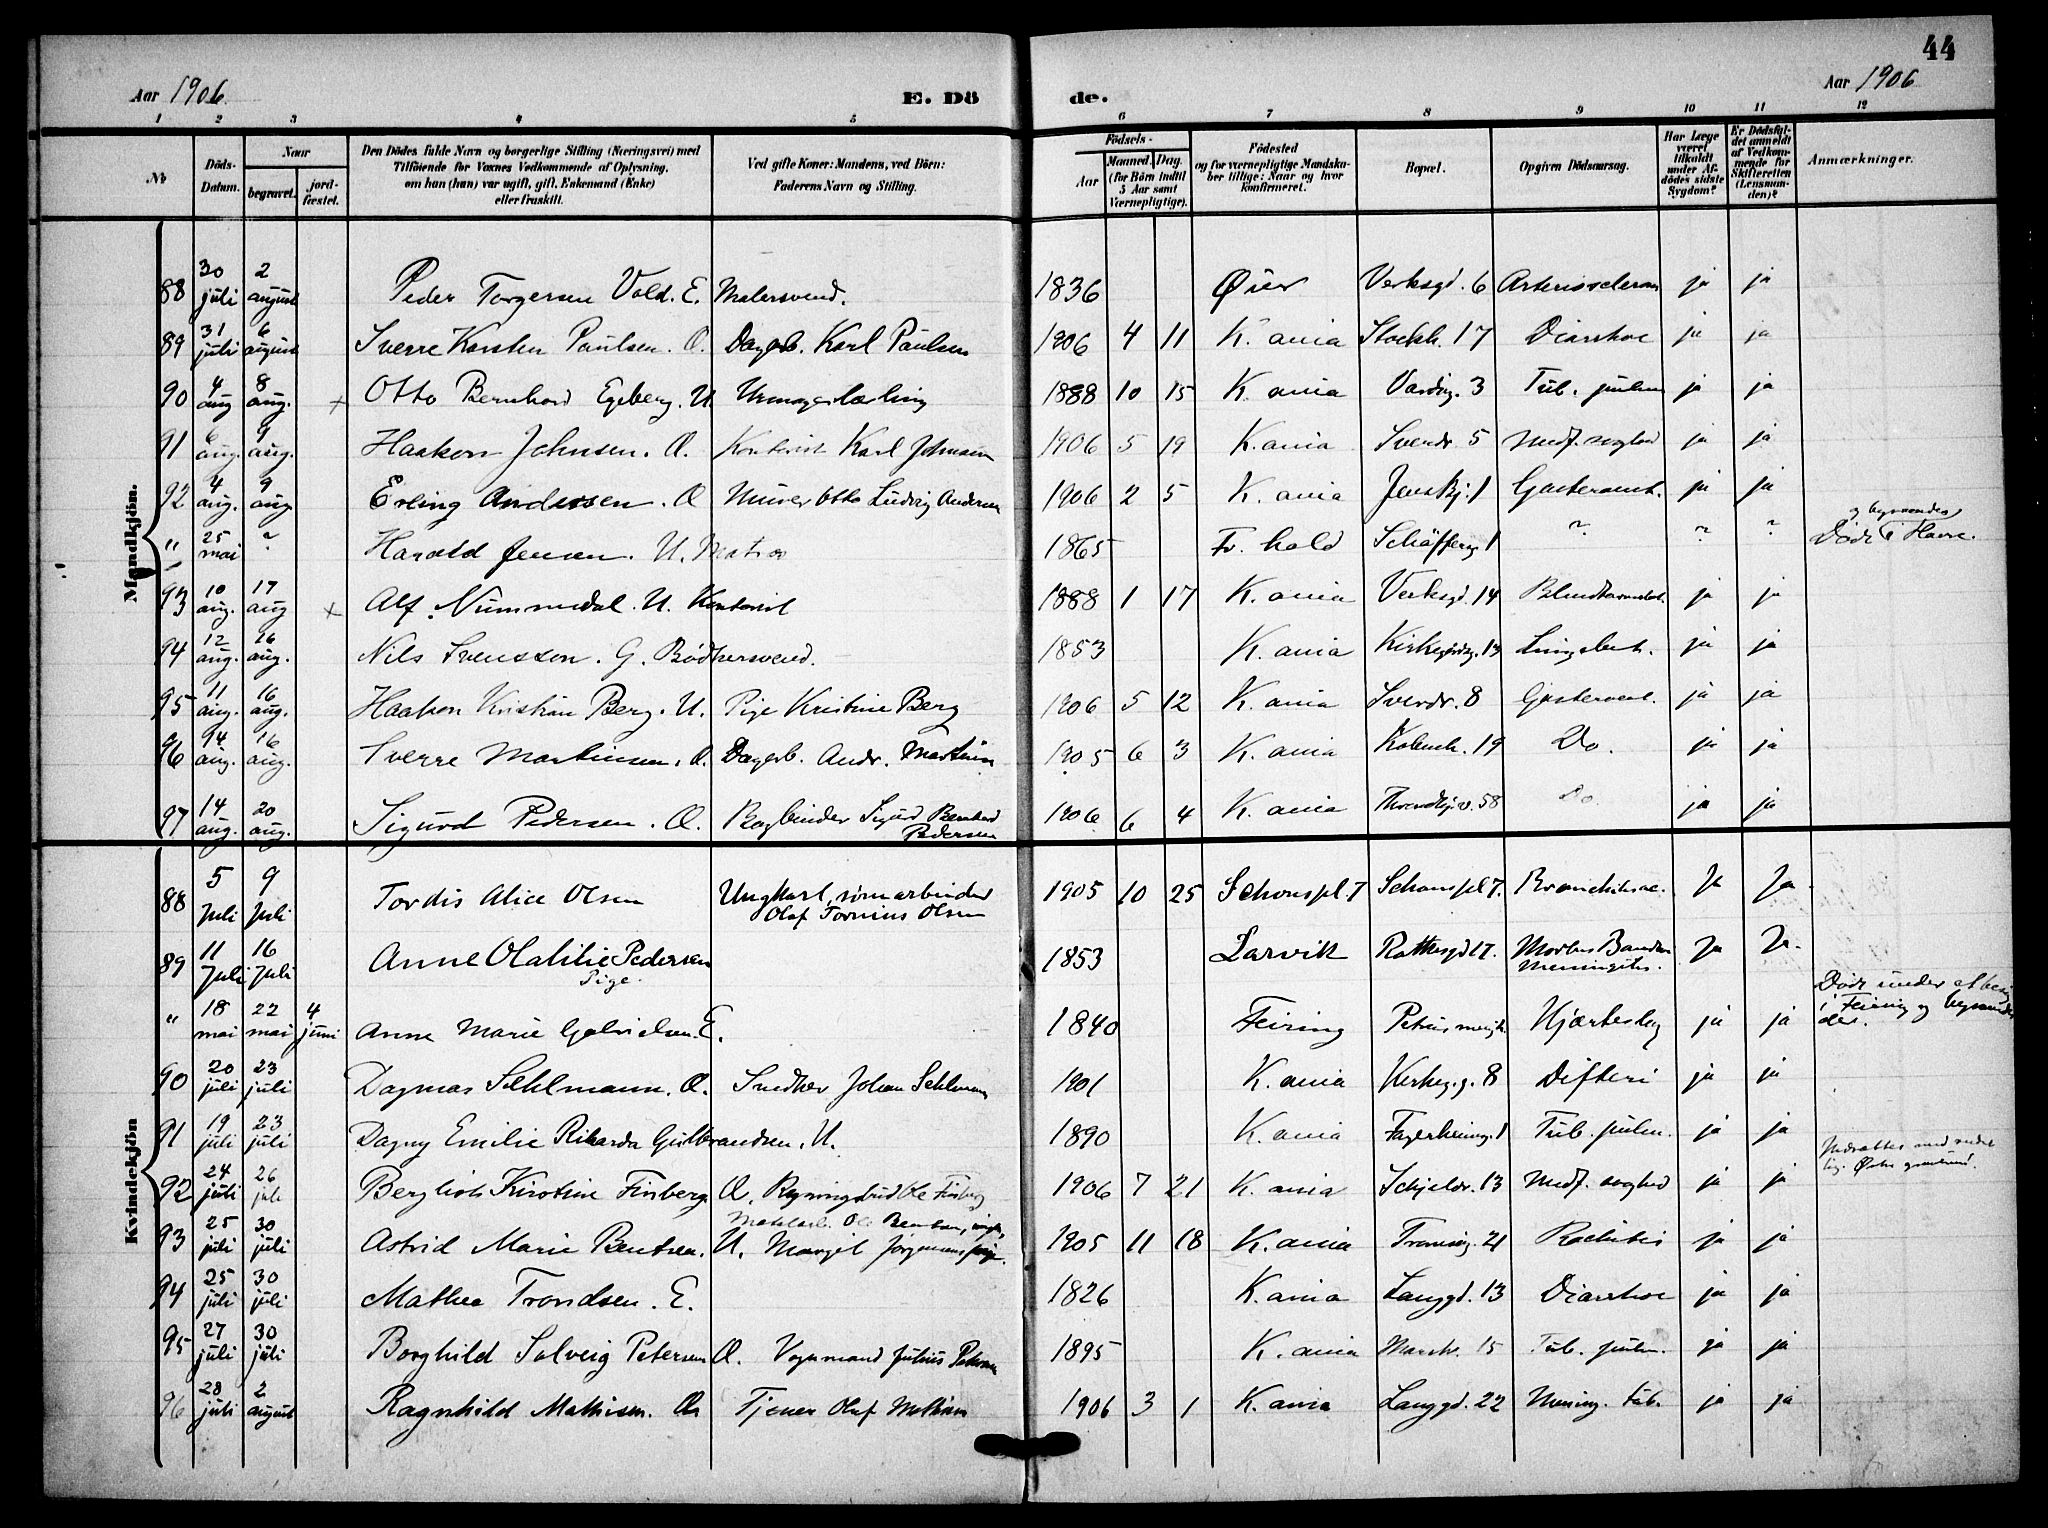 44
Aar 1906. E. Dö de. Aar 1906
1 2 3 4 5 6 7 8 9 10 11 12
No Döds-Datum. Naar begravet. jord-fæstet. Den Dödes fulde Navn og borgerlige Stilling (Næringsvei) med Tilföiende for Voxnes Vedkommende af Oplysning, om han (hun) var ugift, gift, Enkemand (Enke) eller fraskilt. Ved gifte Koner: Mandens, ved Börn: Faderens Navn og Stilling. Födsels- Aar Maaned. Dag. (for Börn indtil 5 Aar samt Værnepligtige). Födested og for værnepligtige Mandskaber tillige: Naar og hvor konfirmeret. Bopæl. Opgiven Dödsaarsag. Har Læge været tilkaldt under Afdödes sidste Sygdom? Er Dödsfaldet anmeldt af Vedkommende for Skifteretten (Lensmanden)? Anmærkninger.
Mandkjön.
88 30 juli 2 august Peder Torgersen Vold. E. Malersvend. 1836 Øier Verksgd. 6 ja ja
89 31 juli 6 august Sverre Karsten Paulsen. Æ. Dagarb. Karl Paulsen 1906 4 11 K.ania Stockh. 17 Diarrhoe ja ja
90 4 aug 8 aug. x Otto Bernhard Egeberg. U Urmagerlærling 1888 10 15 K.ania 3 Tub. pulm ja ja
91 6 aug. 9 aug. Haakon Johnsen. Æ. Kontorist Karl Johnsen 1906 5 19 K.ania Sverdr. 5 Medf. svaghed ja ja
92 4 aug. 9 aug Erling Andersen. Æ Murer Otto Ludvig Andersen 1906 2 5 K.ania Jenskj. 1 ja ja
" 25 mai ? Harald Jensen. U. Matros 1865 Fr.hald Schäfferg. 1 ? ? ? Døde og begravedes i Havre.
93 10 aug. 17 aug x Alf Nummedal. U. Kontorist 1888 1 17 K.ania Verksgd. 14 ja ja
94 12 aug. 16 aug. Nils Svensson. G. Bødkersvend. 1853 K.ania Kirkegårdsg. 13 Lungebet. ja ja
95 11 aug. 16 aug. Haakon Kristian Berg. U. Pige Kristine Berg 1906 5 12 K.ania Sverdr. 8 ja ja
96 14 aug. 16 aug. Sverre Martinsen. Æ. Dagarb. Andr. Martinsen 1905 6 3 K.ania Kobenh. 19 Do. ja ja
97 14 aug. 20 aug. Sigurd Pedersen. Æ. Bogbinder Sigurd Bernhard
Pedersen 1906 6 4 K.ania Throndhj.v. 58 Do. ja ja
Kvindekjön
88 5 Juli 9 Juli Tordis Alice Olsen Ungkarl, sömarbeider
Olaf Tornius Olsen 1905 10 25 Schouspl. 7 Schouspl 7. Bronchitis Ja Ja
89 11 Juli 16 Juli Anne Olalilie Pedersen
Pige. 1853 Larvik Rathkesgd 17. Morbus
Meningitis. Ja Ja
" 18 mai 22 mai 4 juni Anne Marie Gabrielsen. E. 1840 Feiring Hjærteslag ja ja Døde under et besøg
i Feiring og begravedes
der.
90 20 juli 23 juli Dagmar Sehlmann. Æ. Snedker Johan Sehlmann 1901 K.ania Kirkeg.g. 8 Difteri ja ja
91 19 juli 23 juli Dagny Emilie Rikarda Gulbrandsen. U. 1890 K.ania Fagerheimg. 1 Tub. pulm. ja ja
92 24 juli 26 juli Bergliot Kirstine Finberg Æ. Bygningsbud Ole Finberg 1906 7 21 K.ania Schjeldr. 13 Medf. svaghed ja ja
93 25 juli 30 juli Astrid Marie Bentsen. U. Ole Bentsen, ungk.,
Margit Jørgensen, pige. 1905 11 18 K.ania Tromsøg. 21 Rachitis ja ja
94 25 juli 30 juli Mathea Trondsen. E. 1826 K.ania Langgd. 13 Diarrhoe ja ja
95 27 juli 30 juli Borghild Solveig Petersen Æ. Vognmand Julius Petersen 1895 K.ania Markv. 15 Tub. pulm. ja ja
96 28 juli 2 august Ragnhild Mathisen. Æ Tjener Olaf Mathisen 1906 3 1 K.ania Langgd. 22 Mening. tub. ja ja